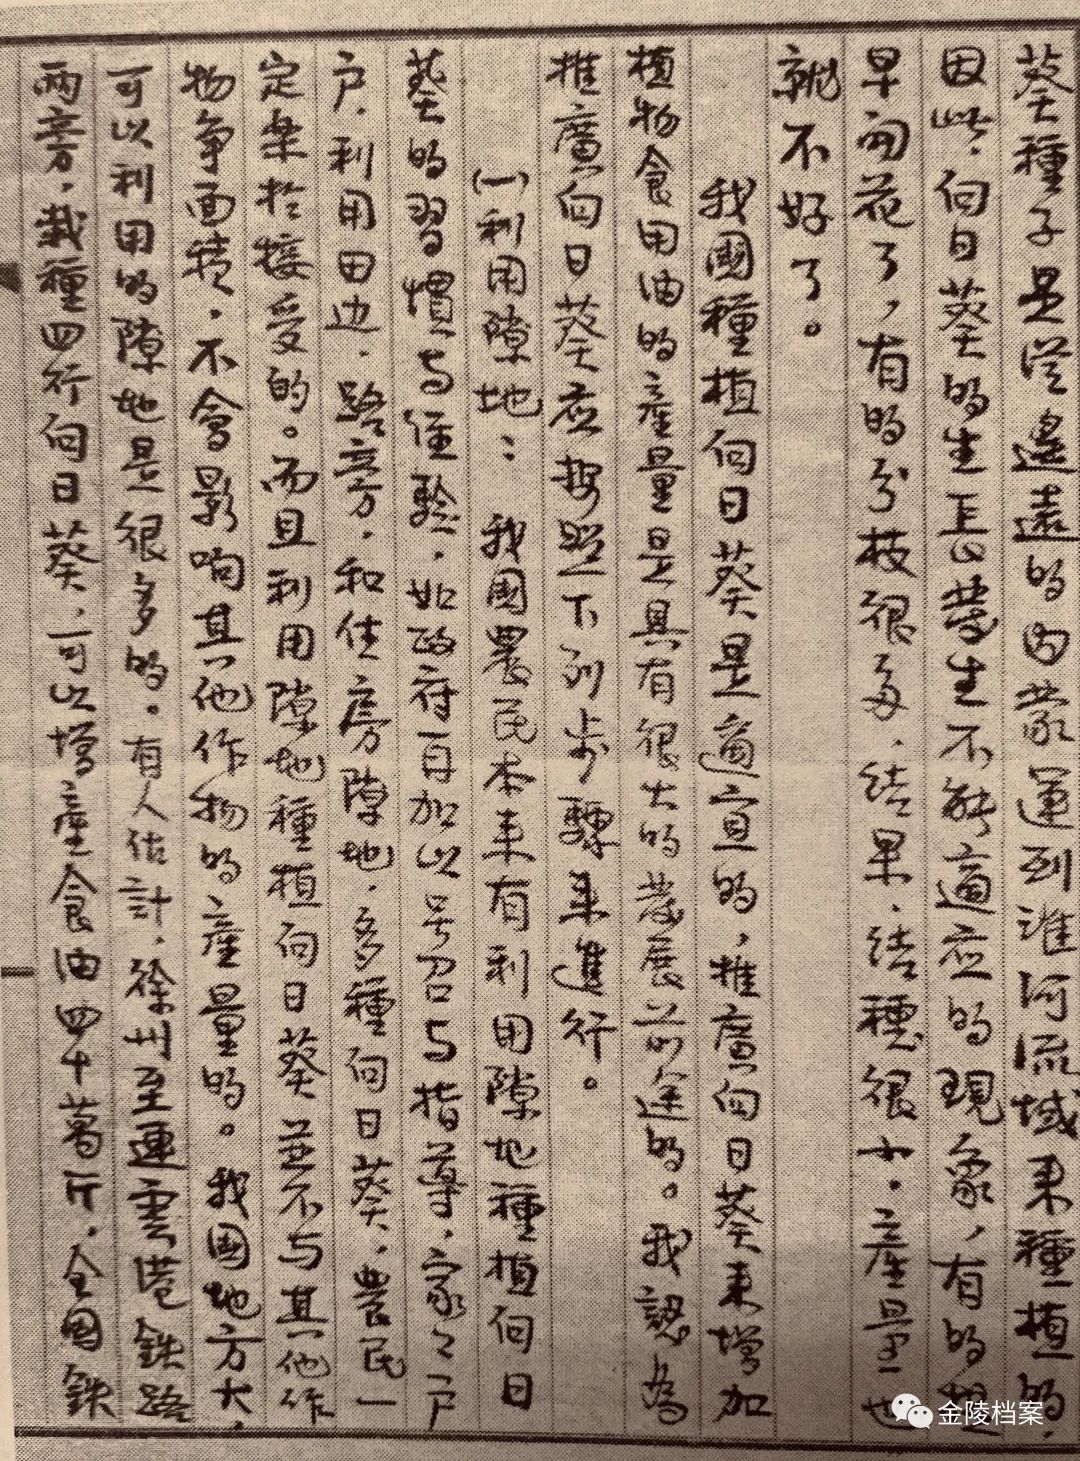 葵種子是從邊遠的內蒙運到淮河流域来種植的，
因此，向日葵的生長發生不能適应的現象，有的
早開花了，有的分枝很多，结果，结種很少，產量也
就不好了。
我國種植向日葵是適宜的，推廣向日葵来增加
植物食用油的產量是具有很大的發展前途的。我認為
推廣向日葵应按照下列步驟来進行。
(一)利用隙地：我國農民本来有利用隙地種植向日
葵的習慣与经驗，如政府再加以号召与指導，家々户
户，利用田边，路旁，和住房隙地，多種向日葵，農民一
定楽於接受的。而且利用隙地種植向日葵並不与其他作
物争面積，不會影响其他作物的產量的。我國地方大，
可以利用的隙地是很多的。有人估計，徐州至連雲港鉄路
兩旁，栽種四行向日葵，可以增產食油四十萬斤，全國鉄
金陵档案